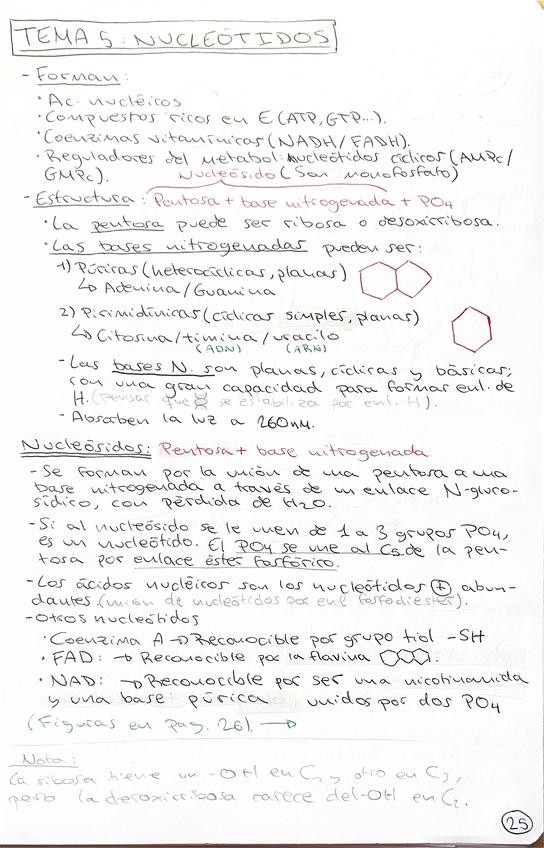 TEMA 5: NUCLEÓTIDOS
- Forman:
· Ac. nucléicos
· Compuestos ricos en E (ATP, GTP...).
· Coenzimas vitamínicas (NADH/FADH).
· Reguladores del metabol. nucleótidos cíclicos (AMPc/
GMPc).
Nucleósido (Son monofosfato)
- Estructura: Pentosa + base nitrogenada + PO4
· La pentosa puede ser ribosa o desoxirribosa.
· Las bases nitrogenadas pueden ser:
1) Púricas (heterocíclicas, planas)
↳ Adenina/Guanina
2) Pirimidínicas (cíclicas simples, planas)
↳ Citosina/timina/uracilo
(ADN) (ARN)
- Las bases N. son planas, cíclicas y básicas;
con una gran capacidad para formar enl. de
H. (pensar que se estabiliza por enl. H).
- Absorben la luz a 260nm.
Nucleósidos: Pentosa + base nitrogenada
- Se forman por la unión de una pentosa a una
base nitrogenada a través de un enlace N-gluco-
sídico, con pérdida de H2O.
- Si al nucleósido se le unen de 1 a 3 grupos PO4,
es un nucleótido. El PO4 se une al C5 de la pen-
tosa por enlace éster fosfórico.
- Los ácidos nucléicos son los nucleótidos ⊕ abun-
dantes (unión de nucleótidos por enl fosfodiéster).
- Otros nucleótidos
· Coenzima A → Reconocible por grupo tiol -SH
· FAD: → Reconocible por la flavina
· NAD: → Reconocible por ser una nicotinamida
y una base púrica unidos por dos PO4
(Figuras en pag. 26) →
Nota:
La ribosa tiene un -OH en C2 y otro en C3,
pero la desoxirribosa carece del -OH en C2.
25